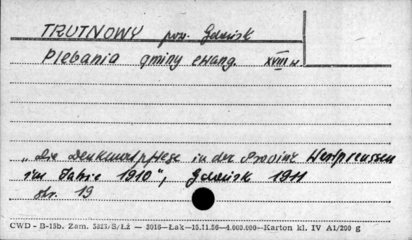 TRUTNOWY pow. Gdańsk
Plebania gminy ewang. XVIII w.
"Die Denkmalpflege in der Provinz Westpreussen
im Jahre 1910", Gdańsk 1911
str. 19
CWD - B-15b. Zam. 5827/S/Lż — 3016—Łak—15.11.56—4.000.000—Karton kl. IV A1/200 g